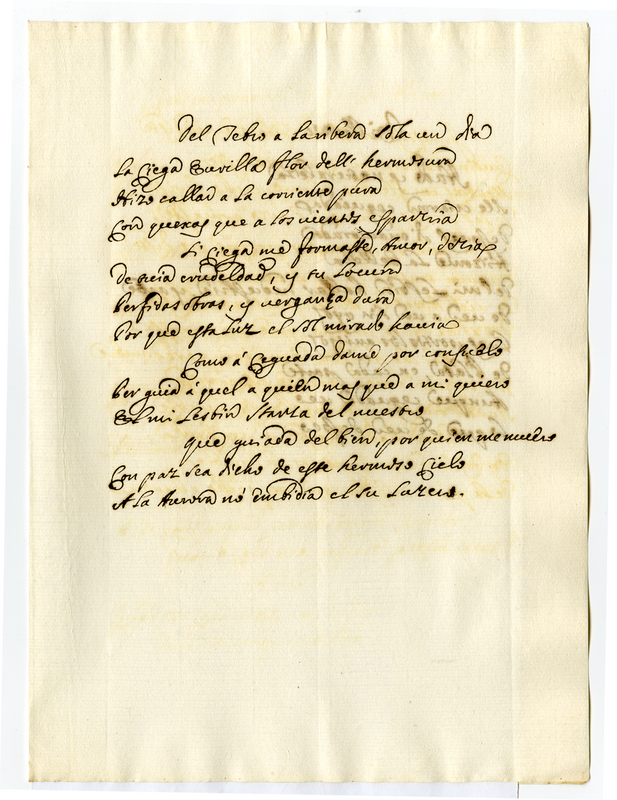 Del Tebro a la ribera sola un dia
La Ciega Eurilla flor dell' hermosura
Hizo callar a la corriente pura
Con quexas que a los vientos esparzia
Si Ciega me formaste, Amor, dezia
De neia crueldad, y tu Locura
Perfidas obras, y verganza dura
Por que esta luz el sol mirado havia
Como á Ceguada dame por consuelo
Per guia á quel a quien mas que a mi quiero
El mi Lesbin del nuestro
Que guiada del bien, por quien me muero
Con paz sea dicho de este hermoso Cielo
A la Aurora nó embidia el su Luzero.